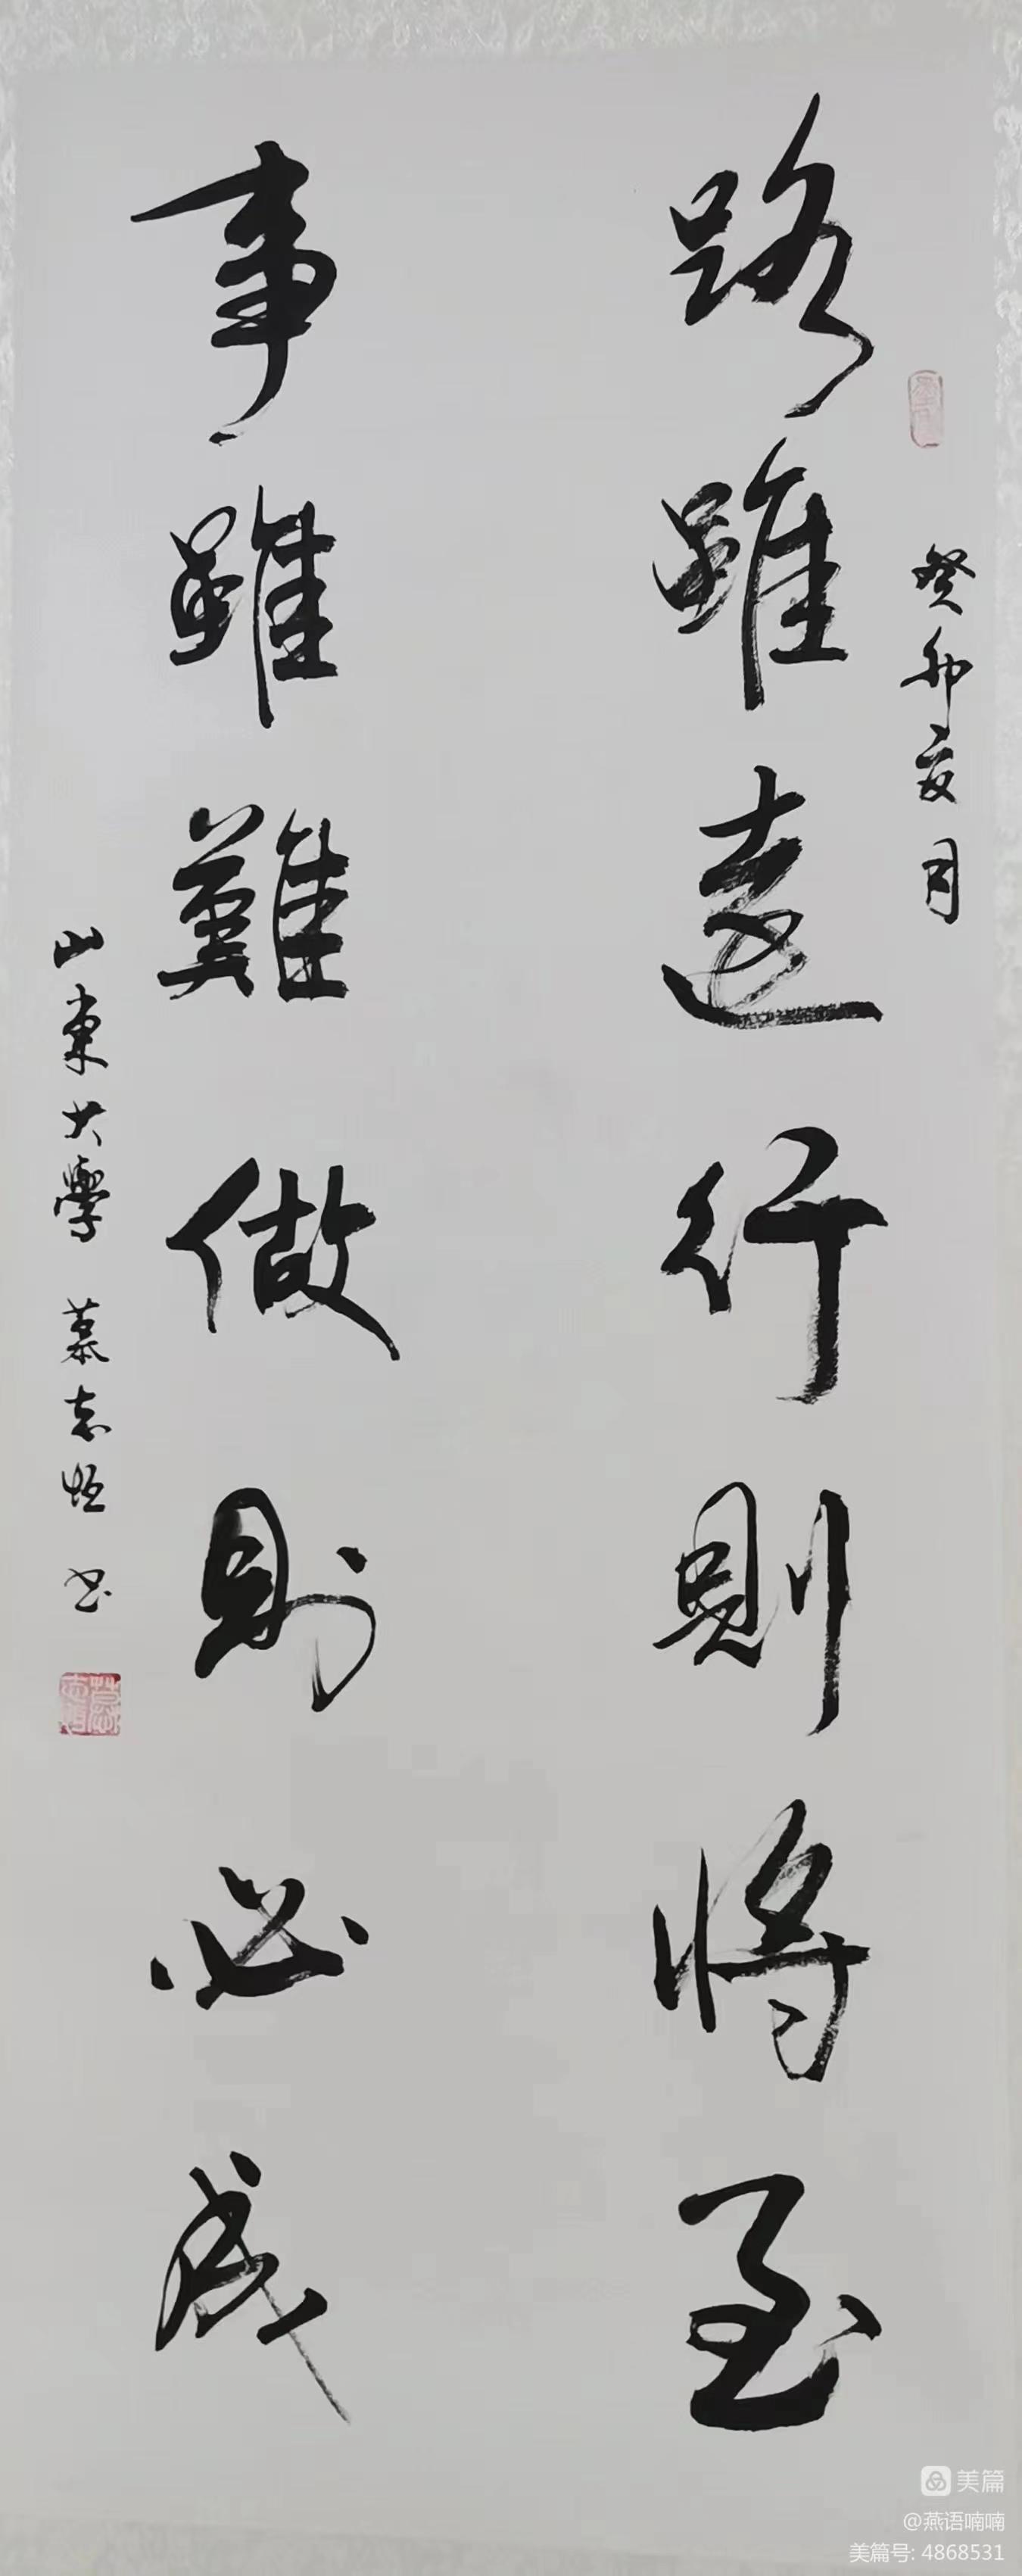 癸卯亥月
路雖遠行則將至
事雖難做則必成
山東大學 慕志恒 书
美篇
@燕语喃喃
美篇号: 4868531